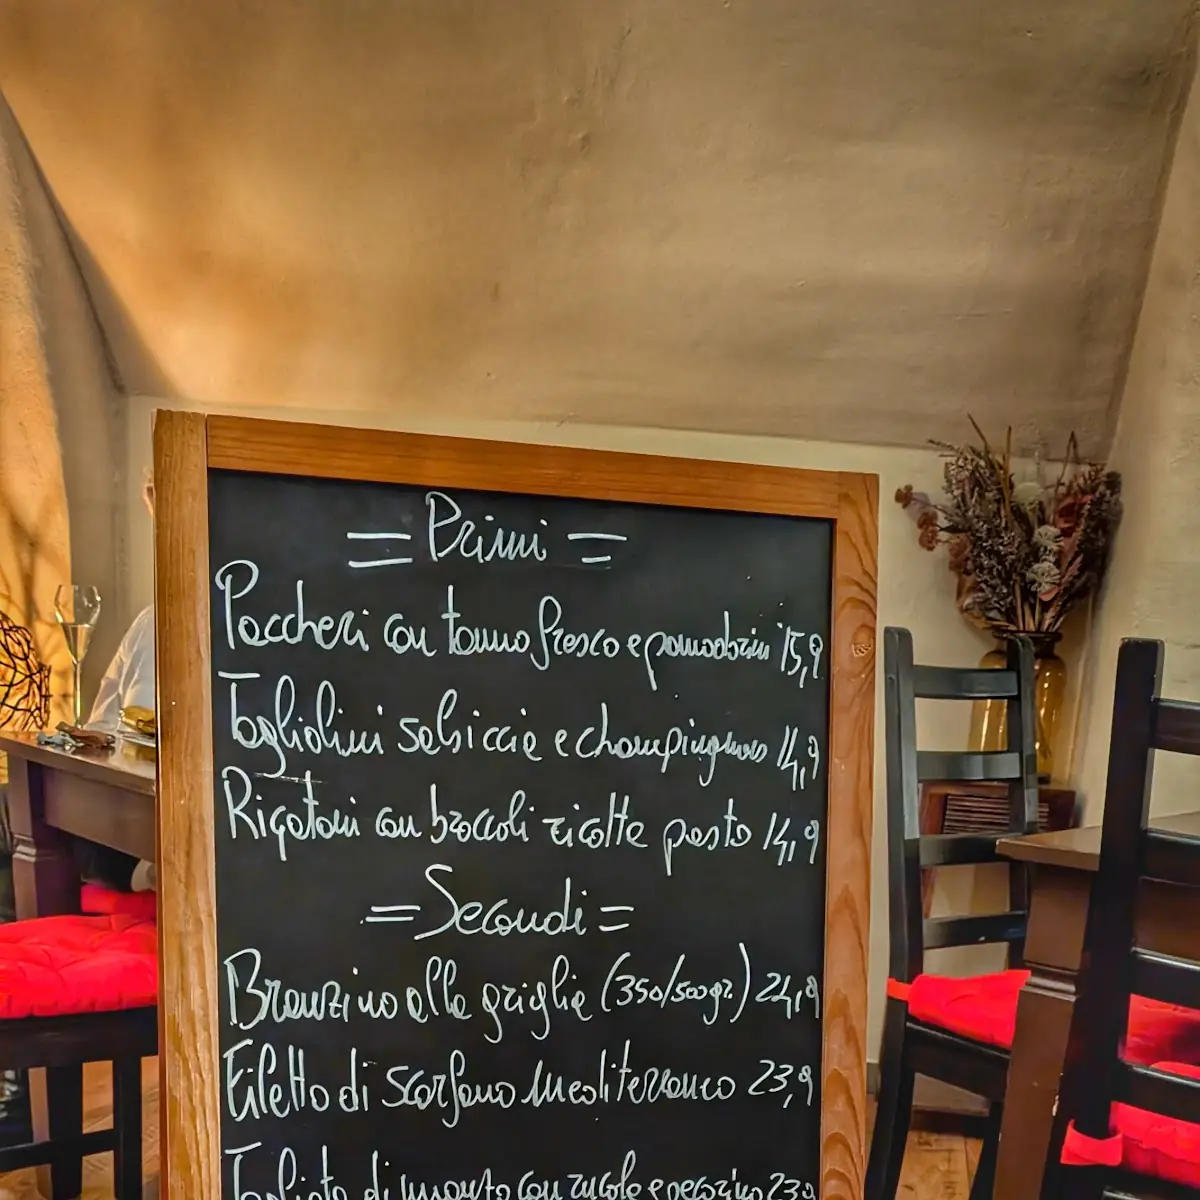 = Primi =
Paccheri con tonno fresco e pomodorini 15,9
Tagliolini salsiccia e champignons 14,9
Rigatoni con broccoli ricotta pesto 14,9
= Secondi =
Branzino alla griglia (350/500gr.) 24,9
Filetto di scorfano mediterraneo 23,9
Tagliata di manzo con rucola e pecorino 23,9